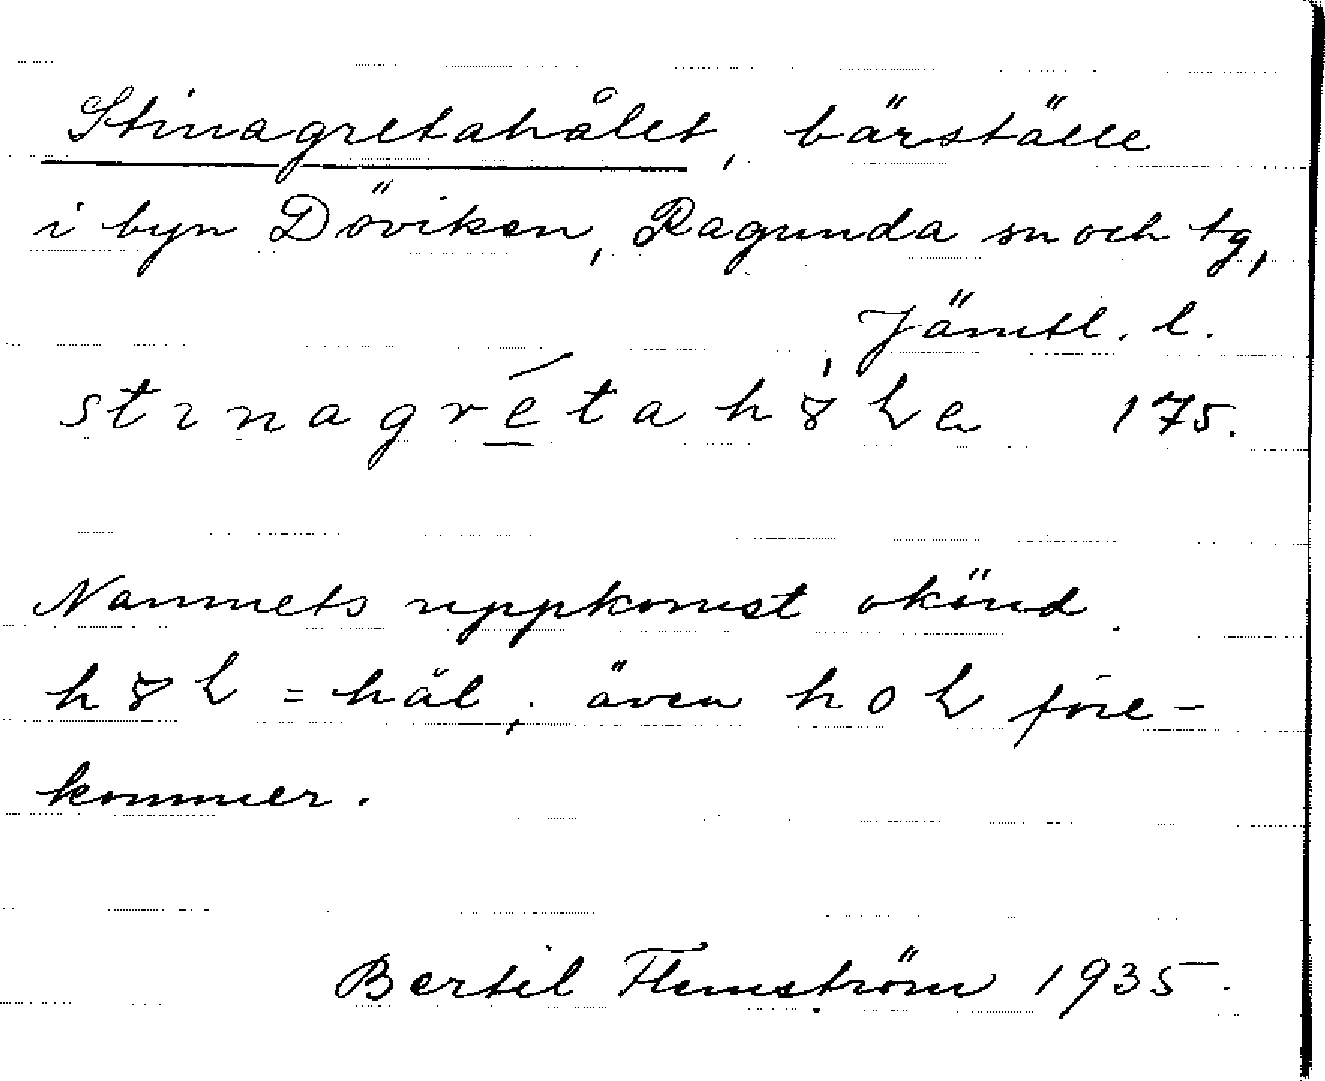 Stinagretahålet, bärställe
i byn Döviken, Ragunda sn och tg,
Jämtl. l.
stinagrétahȣ̍ɫe 175.
Namnets uppkomst okänd.
hȣɫ = hål; även hoɫ före-
kommer.
Bertil Flemström 1935.